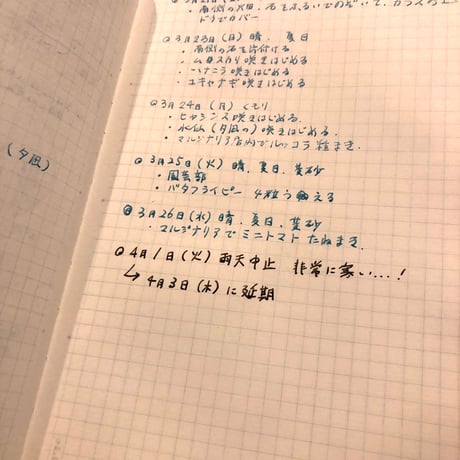 ・南側の花田、石をふるいでのぞいて、カラスの上
ドラでカバー
3月23日(日)晴、夏日
・南側の石を片付ける
・ムスカリ咲きはじめる
・ハナニラ咲きはじめる
・ユキヤナギ咲きはじめる
3月24日(月)くもり
・ヒヤシンス咲きはじめる.
・水仙(夕凪の)咲きはじめる.
・マルジナリア店内でルッコラ種まき.
(夕凪)
3月25日(火)晴、夏日、黄砂
・園芸部
・バタフライピー 4粒うえる
3月26日(水)晴、夏日、黄砂
・マルジナリアでミニトマトたねまき.
4月1日(火)雨天中止 非常に寒い…!
↳4月3日(木)に延期